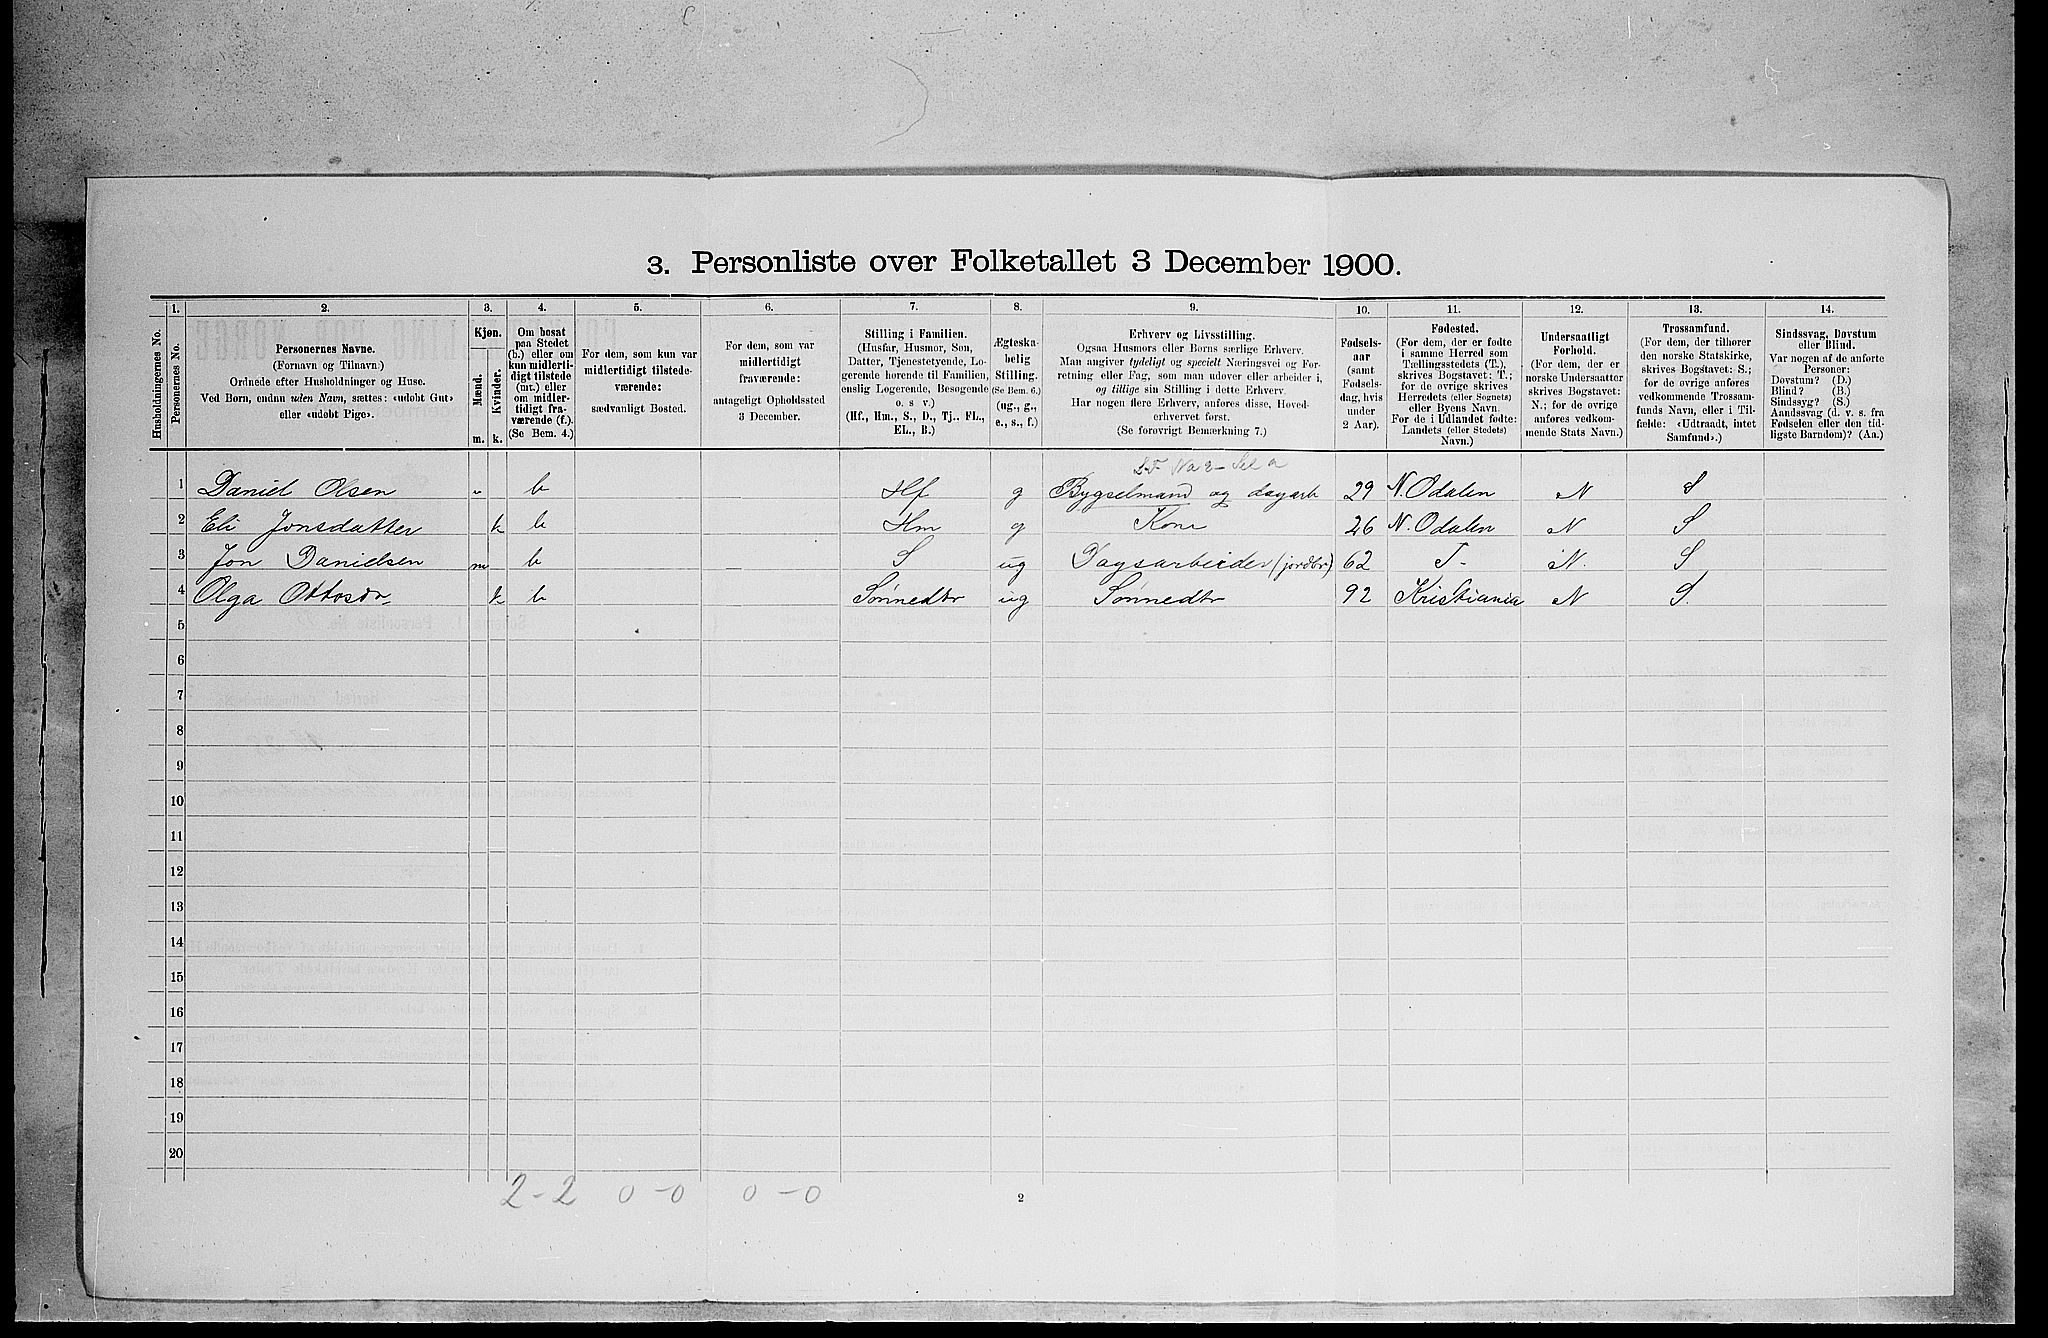 3. Personliste over Folketallet 3 December 1900.
1. 2. 3. 4. 5. 6. 7. 8. 9. 10. 11. 12. 13. 14.
Husholdningernes No.
Personernes No.
Personernes Navne.
(Fornavn og Tilnavn)
Ordnede efter Husholdninger og Huse.
Ved Børn, endnu uden Navn, sættes: «udøbt Gut»
eller «udøbt Pige».
Kjøn.
Mænd.
Kvinder.
m. k.
Om bosat
paa Stedet
(b.) eller om
kun midlerti-
digt tilstede
(mt.) eller
om midler-
tidigt fra-
værende (f.).
(Se Bem. 4.)
For dem, som kun var
midlertidigt tilstede-
værende:
sædvanligt Bosted.
For dem, som var
midlertidigt
fraværende:
antageligt Opholdssted
3 December.
Stilling i Familien.
(Husfar, Husmor, Søn,
Datter, Tjenestetyende, Lo-
gerende hørende til Familien,
enslig Logerende, Besøgende
o. s v.)
(Hf., Hm., S., D., Tj., FL.,
EL., B.)
Ægteska-
belig
Stilling.
(Se Bem. 6.)
(ug., g.,
e., s., f.)
Erhverv og Livsstilling.
Ogsaa Husmors eller Børns særlige Erhverv.
Man angiver tydeligt og specielt Næringsvei og For-
retning eller Fag, som man udøver eller arbeider i,
og tillige sin Stilling i dette Erhverv.
Har nogen flere Erhverv, anføres disse, Hoved-
erhvervet først.
(Se forøvrigt Bemærkning 7.)
Fødsels-
aar
(samt
Fødsels-
dag, hvis
under
2 Aar).
Fødested.
(For dem, der er fødte
i samme Herred som
Tællingsstedets (T.),
skrives Bogstavet: T.;
for de øvrige skrives
Herredets (eller Sognets)
eller Byens Navn.
For de i Udlandet fødte:
Landets (eller Stedets)
Navn.)
Undersaatligt
Forhold.
(For dem, der er
norske Undersaatter
skrives Bogstavet:
N.; for de øvrige
anføres vedkom-
mende Stats Navn.)
Trossamfund.
(For dem, der tilhører
den norske Statskirke,
skrives Bogstavet: S.;
for de øvrige anføres
vedkommende Trossam-
funds Navn, eller i Til-
fælde: «Udtraadt, intet
Samfund».)
Sindssvag, Døvstum
eller Blind.
Var nogen af de anførte
Personer:
Døvstum? (D.)
Blind? (B.)
Sindssyg? (S.)
Aandssvag (d. v. s. fra
Fødselen eller den tid-
ligste Barndom)? (Aa.)
1 Daniel Olsen b Hf g Bygselmand og dagarb 29 N. Odalen N S
2 Eli Jonsdatter k b Hm g Kone 26 N. Odalen N S
3 Jon Danielsen m b S ug Dagsarbeider (jordbr) 62 T. N. S
4 Olga Ottosdr. k b Sønnedtr ug Sønnedtr 92 Kristiania N S.
5
6
7
8
9
10
11
12
13
14
15
16
17
18
19
20
2-2 0-0 0-0
2